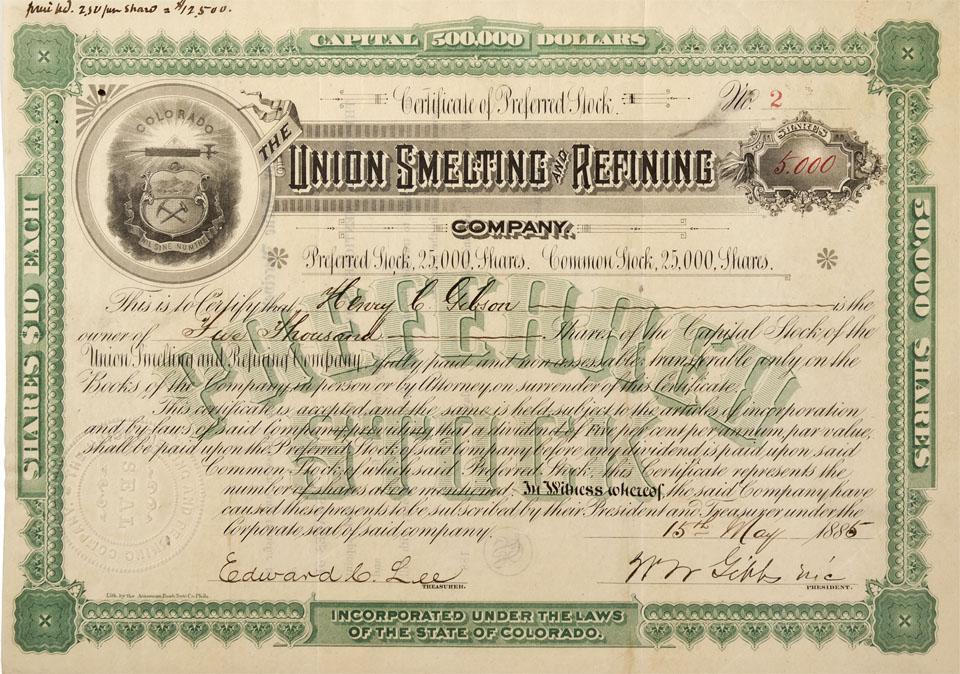 2.50 per share = $12,500.
CAPITAL 500,000 DOLLARS
Certificate of Preferred Stock.
No. 2
COLORADO
NIL SINE NUMINE
THE
UNION SMELTING AND REFINING
COMPANY.
SHARES
5.000
Preferred Stock, 25,000, Shares. Common Stock, 25,000, Shares.
SHARES $10 EACH
50,000 SHARES
PREFERRED
STOCK
This is to Certify that Henry C. Gibson is the
owner of Five Thousand Shares of the Capital Stock of the
Union Smelting and Refining Company, fully paid and nonassessable transferable only on the
Books of the Company in person or by Attorney, on surrender of this Certificate.
This certificate is accepted, and the same is held, subject to the articles of incorporation
and by-laws of said Company, providing that a dividend of Five per cent per annum, par value,
shall be paid upon the Preferred Stock of said Company before any dividend is paid upon said
Common Stock, of which said Preferred Stock, this Certificate represents the
number of shares above mentioned. In Witness whereof, the said Company have
caused these presents to be subscribed by their President and Treasurer under the
Corporate seal of said company.
15th May 1885
SEAL
Edward C. Lee
TREASURER.
W W Gibbs
PRESIDENT.
Lith. by the American Bank Note Co. Phila.
INCORPORATED UNDER THE LAWS
OF THE STATE OF COLORADO.